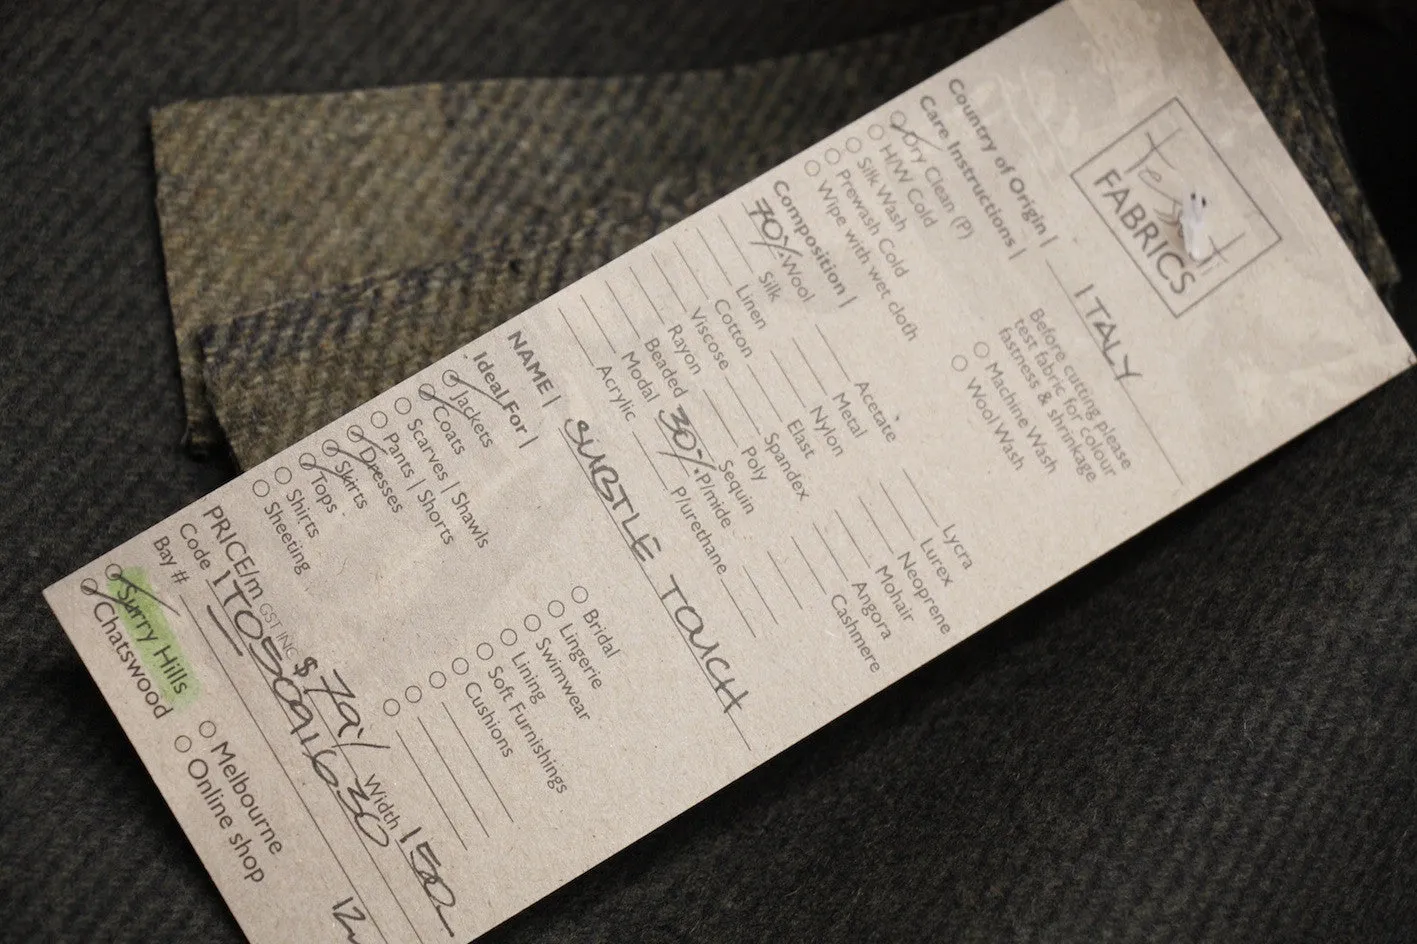 Tessuti
FABRICS
Country of Origin | ITALY
Care Instructions |
Before cutting please
test fabric for colour
fastness & shrinkage
Dry Clean (P)
H/W Cold
Silk Wash
Prewash Cold
Wipe with wet cloth
Machine Wash
Wool Wash
Composition |
70% Wool
Silk
Linen
Cotton
Viscose
Rayon
Beaded
Modal
Acrylic
Acetate
Metal
Nylon
Elast
Spandex
Poly
Sequin
30% P/mide
P/urethane
Lycra
Lurex
Neoprene
Mohair
Angora
Cashmere
NAME | SUBTLE TOUCH
Ideal For |
Jackets
Coats
Scarves | Shawls
Pants | Shorts
Dresses
Skirts
Tops
Shirts
Sheeting
Bridal
Lingerie
Swimwear
Lining
Soft Furnishings
Cushions
PRICE/m GST INC $79/ Width 150
Code ITO5091630
Bay #
Surry Hills
Chatswood
Melbourne
Online shop